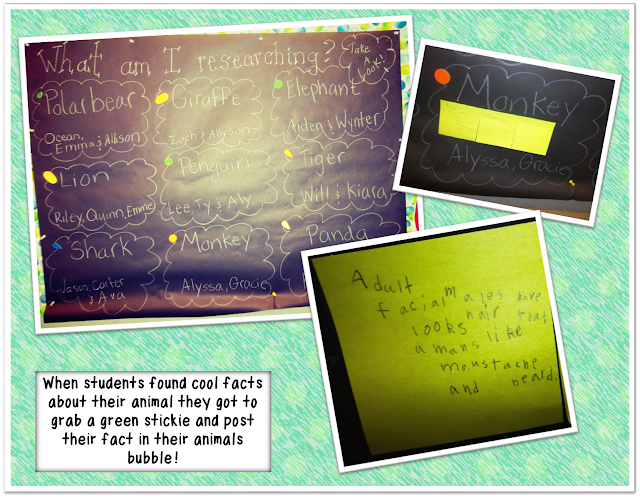 What am I researching?
Take
A
Look!
Polar bear
Ocean,
Emma & Allison
Giraffe
Zach & Allyson
Elephant
Aiden & Wynter
Lion
Riley, Quinn, Emme
Penguin
Lee, Ty & Aly
Tiger
Will & Kiara
Shark
Jason, Carter
& Ava
Monkey
Alyssa, Gracie
Panda
Monkey
Alyssa, Gracie
Adult males have
facial hair that
looks like
a mans
moustache
and beard.
When students found cool facts
about their animal they got to
grab a green stickie and post
their fact in their animals
bubble!